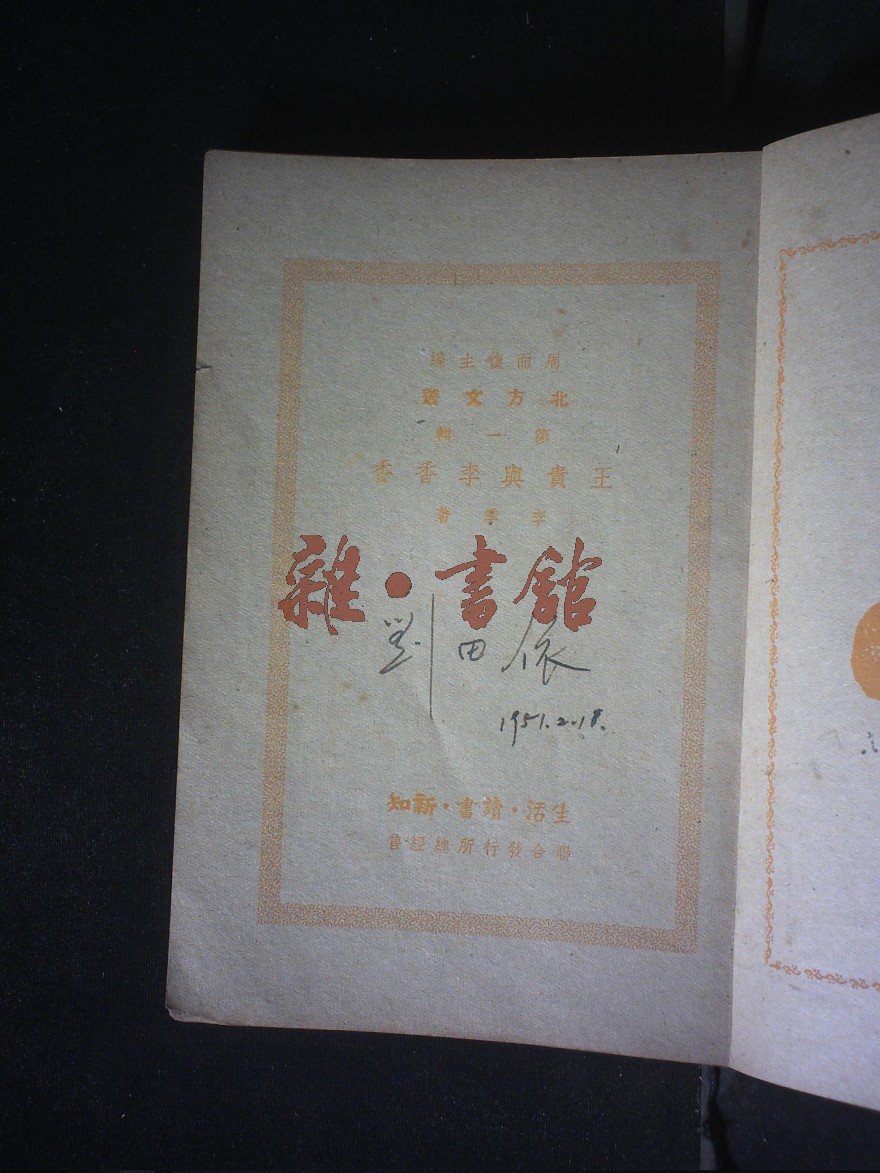 周而復主編
北方文叢
第一輯
王貴與李香香
李季著
雜·書館
劉田依
1951.2.18.
生活·讀書·新知
聯合發行所總經售